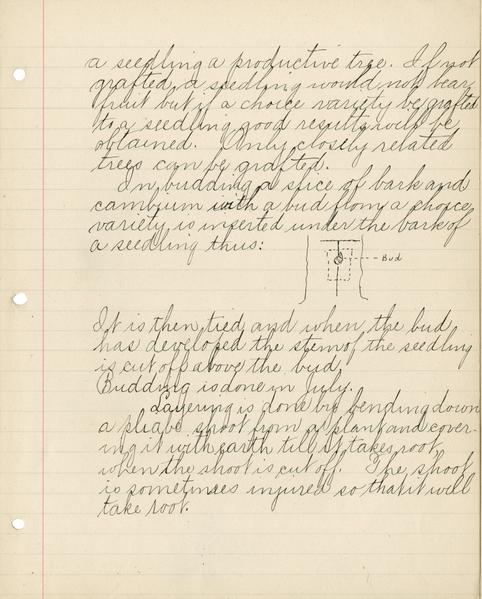 a seedling a productive tree. If not
grafted, a seedling would not bear
fruit but if a choice variety be grafted
to a seedling good results will be
obtained. Only closely related
trees can be grafted.
In budding a slice of bark and
cambium with a bud from a choice
variety is inserted under the bark of
a seedling thus:
Bud
It is then tied and when the bud
has developed the stem of the seedling
is cut off above the bud.
Budding is done in July.
Layering is done by bending down
a pliabe shoot from a plant and cover-
ing it with earth till it takes root
when the shoot is cut off. The shoot
is sometimes injured so that it will
take root.